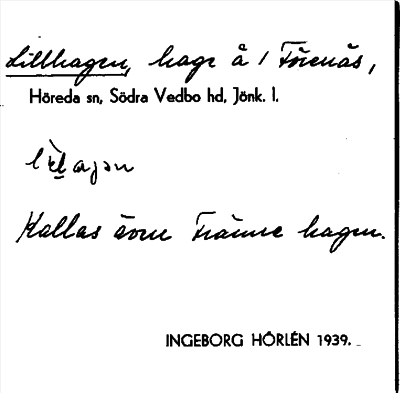 Lillhagen, hage å 1 Förenäs,
Höreda sn, Södra Vedbo hd, Jönk. l.
Kallas även Främre hagen.
INGEBORG HÖRLÉN 1939.